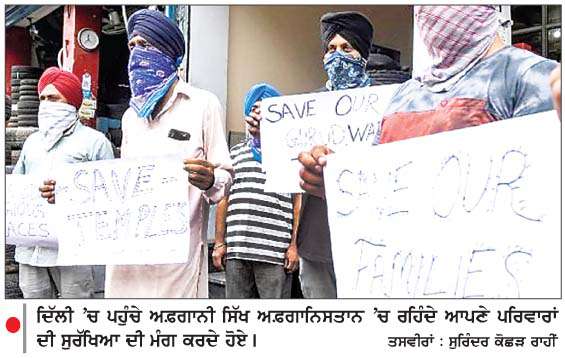 SAVE OUR
GURUDWA
SAVE
TEMPLES
ACES
SAVE OUR
FAMILIES
ਦਿੱਲੀ 'ਚ ਪਹੁੰਚੇ ਅਫ਼ਗਾਨੀ ਸਿੱਖ ਅਫ਼ਗਾਨਿਸਤਾਨ 'ਚ ਰਹਿੰਦੇ ਆਪਣੇ ਪਰਿਵਾਰਾਂ
ਦੀ ਸੁਰੱਖਿਆ ਦੀ ਮੰਗ ਕਰਦੇ ਹੋਏ।
ਤਸਵੀਰਾਂ : ਸੁਰਿੰਦਰ ਕੋਛੜ ਰਾਹੀਂ